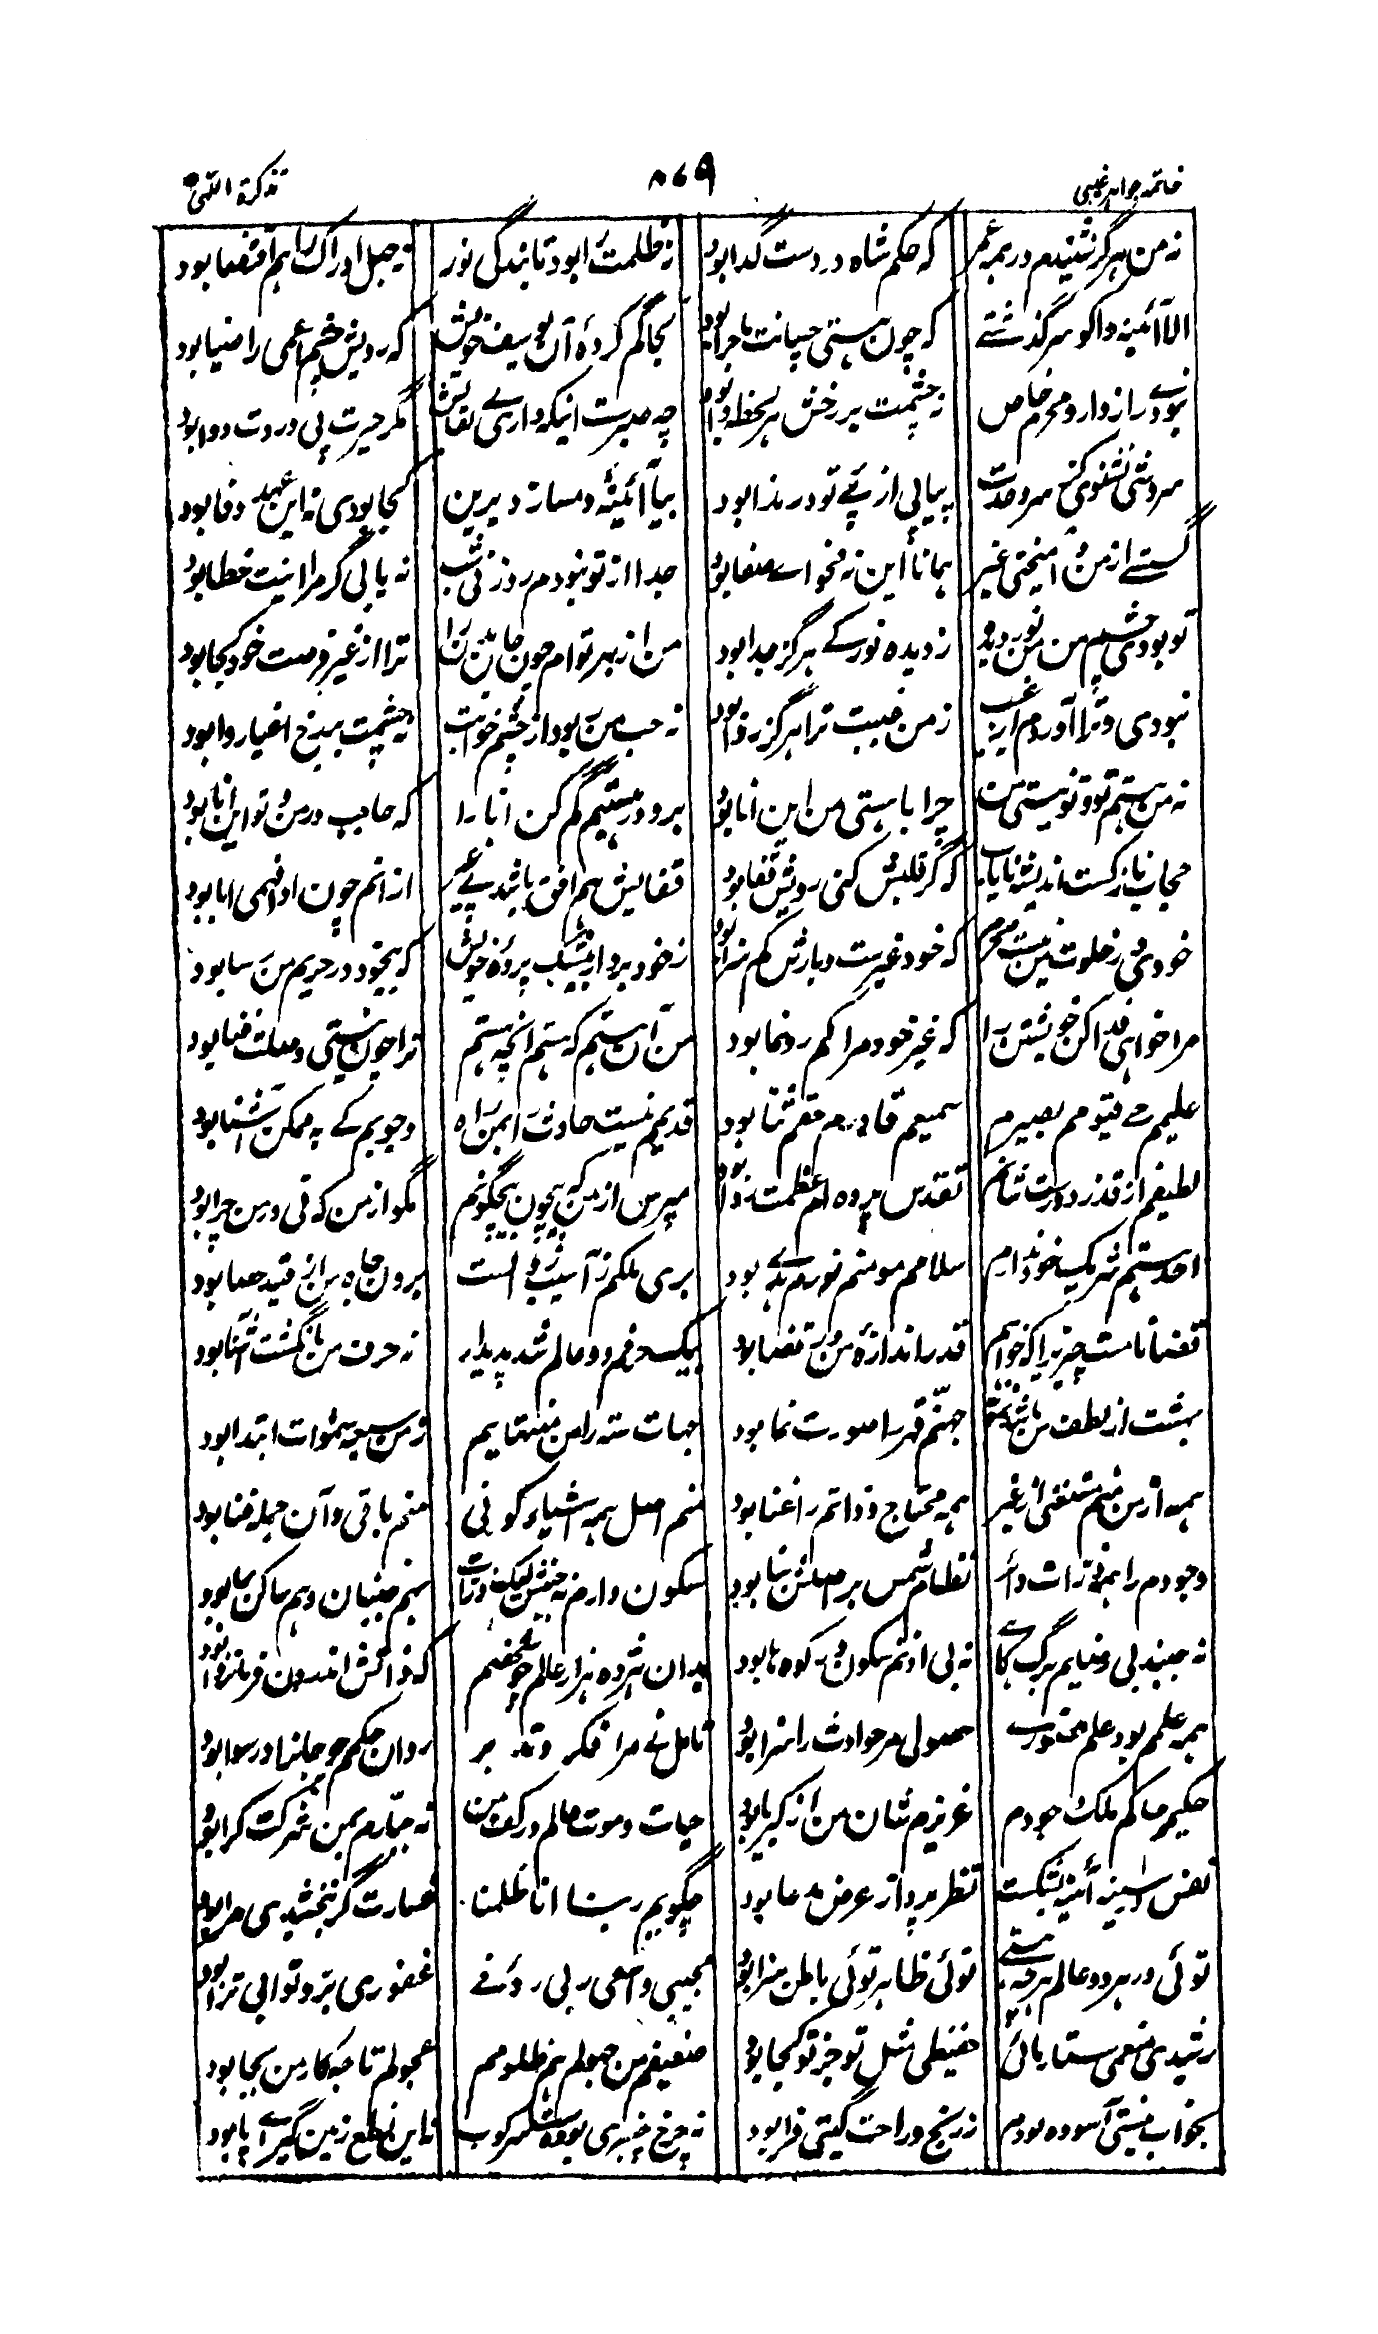 خاتمه جواہر غیبی ۸۷۹ تذکرة اللقی
نہ من ہرگز شنیدم در ہمہ عمر که حکم شاه در دست گدا بود نہ ظلمت را بود تابندگی نور نہ جہل ادراک را ہم اقتضا بود
الا آئینہ واگو سرگذشتے که چون ہستی چسانت ماجرا بود کجا گم کردهٔ آن یوسف خویش که رویش چشم اعمی را ضیا بود
بودے رازدار و محرم خاص نہ چشمت بر رخش ہر لحظہ وا بود چہ صبرست اینکہ داری بے لقائش مگر حیرت پی دردت دوا بود
سروشی نشنوی کنج سر وحدت پیاپی از پئے تو در ندا بود بیا آئینۂ دمساز دیرین کجا بودی نہ این عہد وفا بود
گسستے از من و آمیختی غیر ہمانا این نہ فحوائے صفا بود جدا از تو نبودم روز نی شب نہ یابی گر مرا نیت خطا بود
تو بودی چشم من من نور دیده ز دیده نور کے ہرگز جدا بود من از بہر توام چون جان تن را ترا از غیر فرصت خود کجا بود
نبودی و ترا آوردم از غیب ز من غیبت ترا ہرگز روا بود نہ حب من بود از چشم خوابت که چشمت بر رخ اغیار وا بود
نہ من ہستم تو و تو نیستی من چرا با ہستی من این انا بود برو در ہستیم گم کن انا را که حاجب در من و تو این انا بود
حجاب نازکست اندیشہ نایاب که گر قلبش کنی رویش قفا بود قفایش ہم افق باشد پے غیر از انم چون او فہمی ابا بود
خودی در خلوت من نیست محرم که خود غیرست و بارش کم سزا بود ز خود بردار پیشک پردۂ خویش که بیخود در حریم من رسا بود
مرا خواہی فدا کن خویشتن را که غیر خود مرا کم رونما بود من آن ہستم که ہستم آنچہ ہستم ترا چون نیستی وصلت فنا بود
علیمم حے قیومم بصیرم سمیعم قادرم حقم ثنا بود قدیمم نیست حادث را بمن راه وجوبم کے بہ ممکن آشنا بود
لطیفم از قذر دورست شانم تقدس پرده ام عظمت ردا بود مپرس از من که بیچون بیچگونم مگو از من که نی در من چرا بود
احد ہستم شریک خود ندارم سلامم مومنم نورم بہے بود بری ملکم ز آسیب زوال است برون جاه من از قید حصا بود
قضا نامست چیزے را که خواہم قدر اندازۂ من در قضا بود بیک حرفم دو عالم شد پدیدار نہ حرف من بانگشت آشنا بود
بہشت از لطف من باشد نتیجہ جہنم قہر را صورت نما بود جہات ستہ را من منتہایم ز من سبعہ سموات ابتدا بود
ہمہ از من منم مستغنی از غیر ہمہ محتاج و ذاتم را غنا بود منم اصل ہمہ اشیاء کونی منم باقی و آن جملہ فنا بود
وجودم را ہمہ ذرات دائر نظام شمس بر اصلش بنا بود سکون دارم نہ جنبش لیک ذرات بہم جنبان و ہم ساکن بما بود
نہ جنبد بی رضایم برگ کاہے نہ بی اذنم سکون در کوہ ہا بود بدان ہژده ہزار عالم چو شخصم که ذاتش اندرون فرمانروا بود
ہمہ علمم بود علم حضوری حصولی مر حوادث را سزا بود تامل نے مرا فکر و تدبر روان حکمم چو جان در ما سوا بود
حکیم و حاکم ملک وجودم عزیزم شان من از کبریا بود حیات و موت عالم در کف من نہ جبارم بمن شرکت کرا بود
نفس را سینہ آئینہ بشکست نظر پرداز عرض مدعا بود چگویم ربنا انا ظلمنا خسارت گر نبخشیدی مرا بود
توئی در ہر دو عالم ہرچہ ہستی توئی ظاہر توئی باطن سزا بود مجیبی واسعی ربی رؤفے غفوری بر و توابی ترا بود
رشیدی منعمی ستار بائی حفیظی مثل تو جز تو کجا بود ضعیفم من جہولم ہم ظلومم عجولم تا چہ کار من بجا بود
بخواب نیستی آسوده بودم ز رنج و راحت گیتی فرا بود نہ چرخ چنبری بودہ سرکوب نہ این نطع زمین گیر اے پا بود